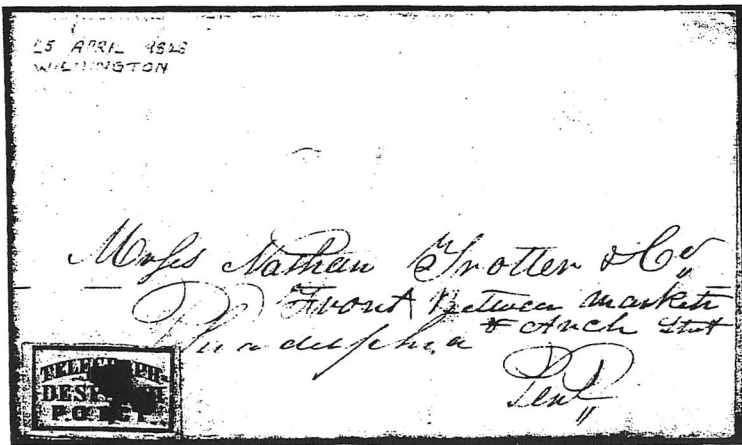 25 APRIL
WILMINGTON
Messs Nathan Trotter & Co
Front Between Market
& Arch Street
Philadelphia
Pena
TELEGRAPH
DESPATCH
P.O.